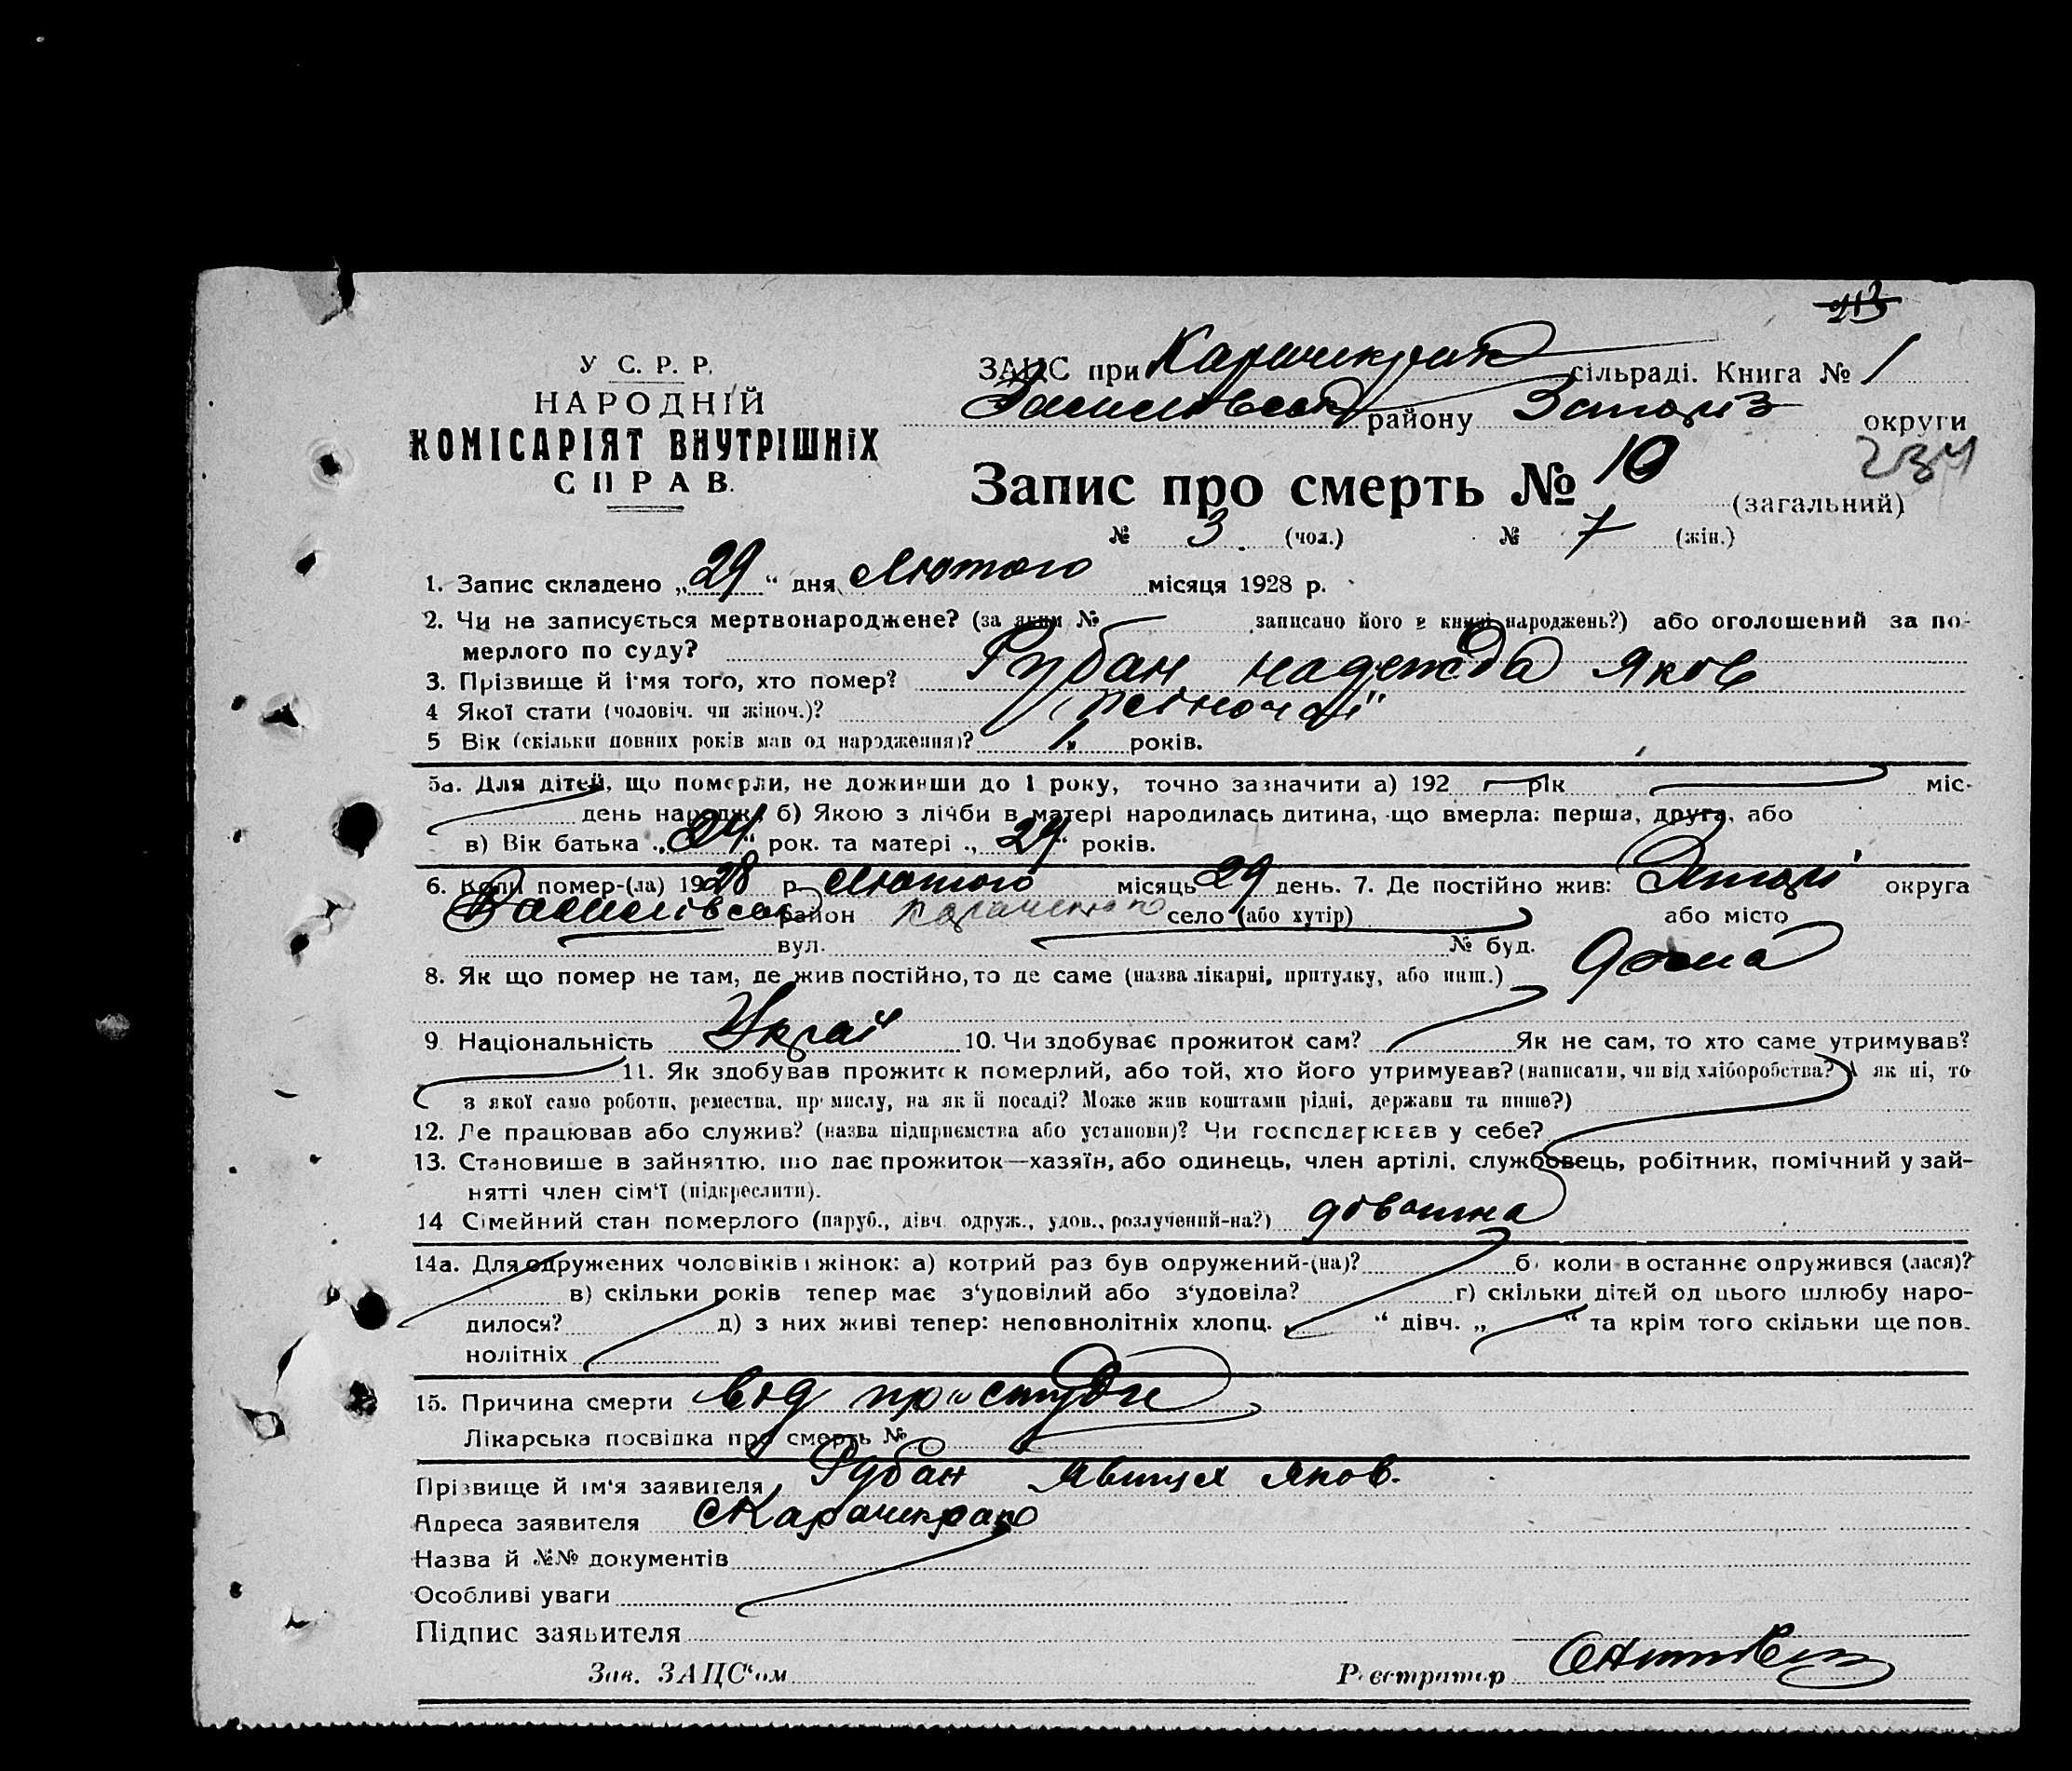 213
У С. Р. Р.
НАРОДНІЙ
КОМІСАРІЯТ ВНУТРІШНІХ
СПРАВ.
ЗАЦС при сільраді. Книга № 1
району Запоріз округи
234
Запис про смерть № 10 (загальний)
№ 3 (чол.) № 7 (жін.)
1. Запис складено „29“ дня Лютого місяця 1928 р.
2. Чи не записується мертвонароджене? (за яким № записано його в книзі народжень?) або оголошений за по-
мерлого по суду?
3. Прізвище й і'мя того, хто помер? Рубан Надежда Яков
4 Якої стати (чоловіч. чи жіноч.)?
5 Вік (скільки повних років мав од народження)? 1 років.
5а. Для дітей, що померли, не доживши до 1 року, точно зазначити а) 192 рік міс.
день народж. б) Якою з лічби в матері народилась дитина, що вмерла: перша, друга, або
в) Вік батька „24“ рок. та матері „24“ років.
6. Коли помер-(ла) 1928 р Лютого місяць 29 день. 7. Де постійно жив: округа
Василівськ район село (або хутір) або місто
вул. № буд.
8. Як що помер не там, де жив постійно, то де саме (назва лікарні, притулку, або инш.) дома
9. Національність Украй 10. Чи здобуває прожиток сам? Як не сам, то хто саме утримував?
11. Як здобував прожиток померлий, або той, хто його утримував? (написати, чи від хліборобства? А як ні, то
з якої само роботи, ремества, промислу, на якій посаді? Може жив коштами рідні, держави та инше?)
12. Де працював або служив? (назва підприємства або установи)? Чи господарював у себе?
13. Становище в зайняттю, що дає прожиток—хазяїн, або одинець, член артілі, службовець, робітник, помічний у зай-
нятті член сім'ї (підкреслити).
14 Сімейний стан померлого (паруб., дівч. одруж., удов., розлучений-на?)
14а. Для одружених чоловіків і жінок: а) котрий раз був одружений-(на)? б) коли в останнє одружився (лася)?
в) скільки років тепер має з'удовілий або з'удовіла? г) скільки дітей од цього шлюбу наро-
дилося? д) з них живі тепер: неповнолітніх хлопц. “ дівч. „ “ та крім того скільки ще пов.
нолітніх
15. Причина смерти від простуди
Лікарська посвідка про смерть №
Прізвище й ім'я заявителя Рубан Яков.
Адреса заявителя
Назва й №№ документів
Особливі уваги
Підпис заявителя
Зав. ЗАЦС'ом Реєстратор